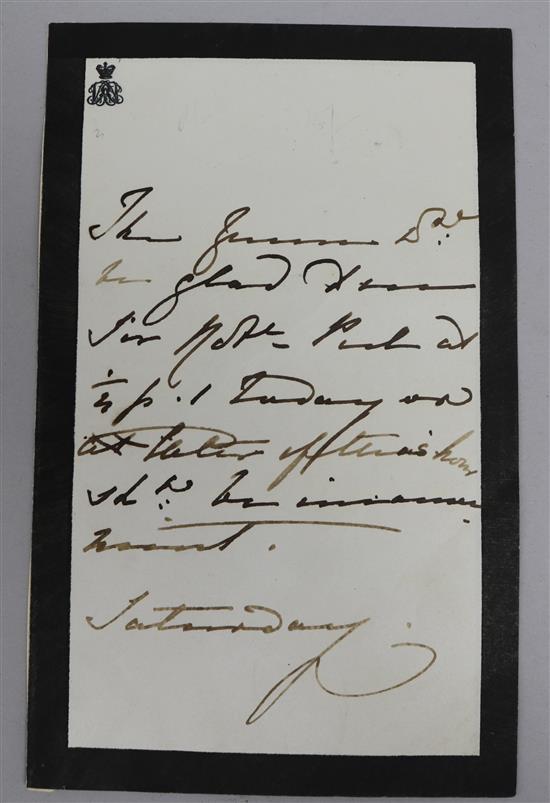 The Queen wd.
be glad to see
Sir Robt. Peel at
1/4 p. 1 today or
at later if this hour
shd. be inconve-
nient.
Saturday.